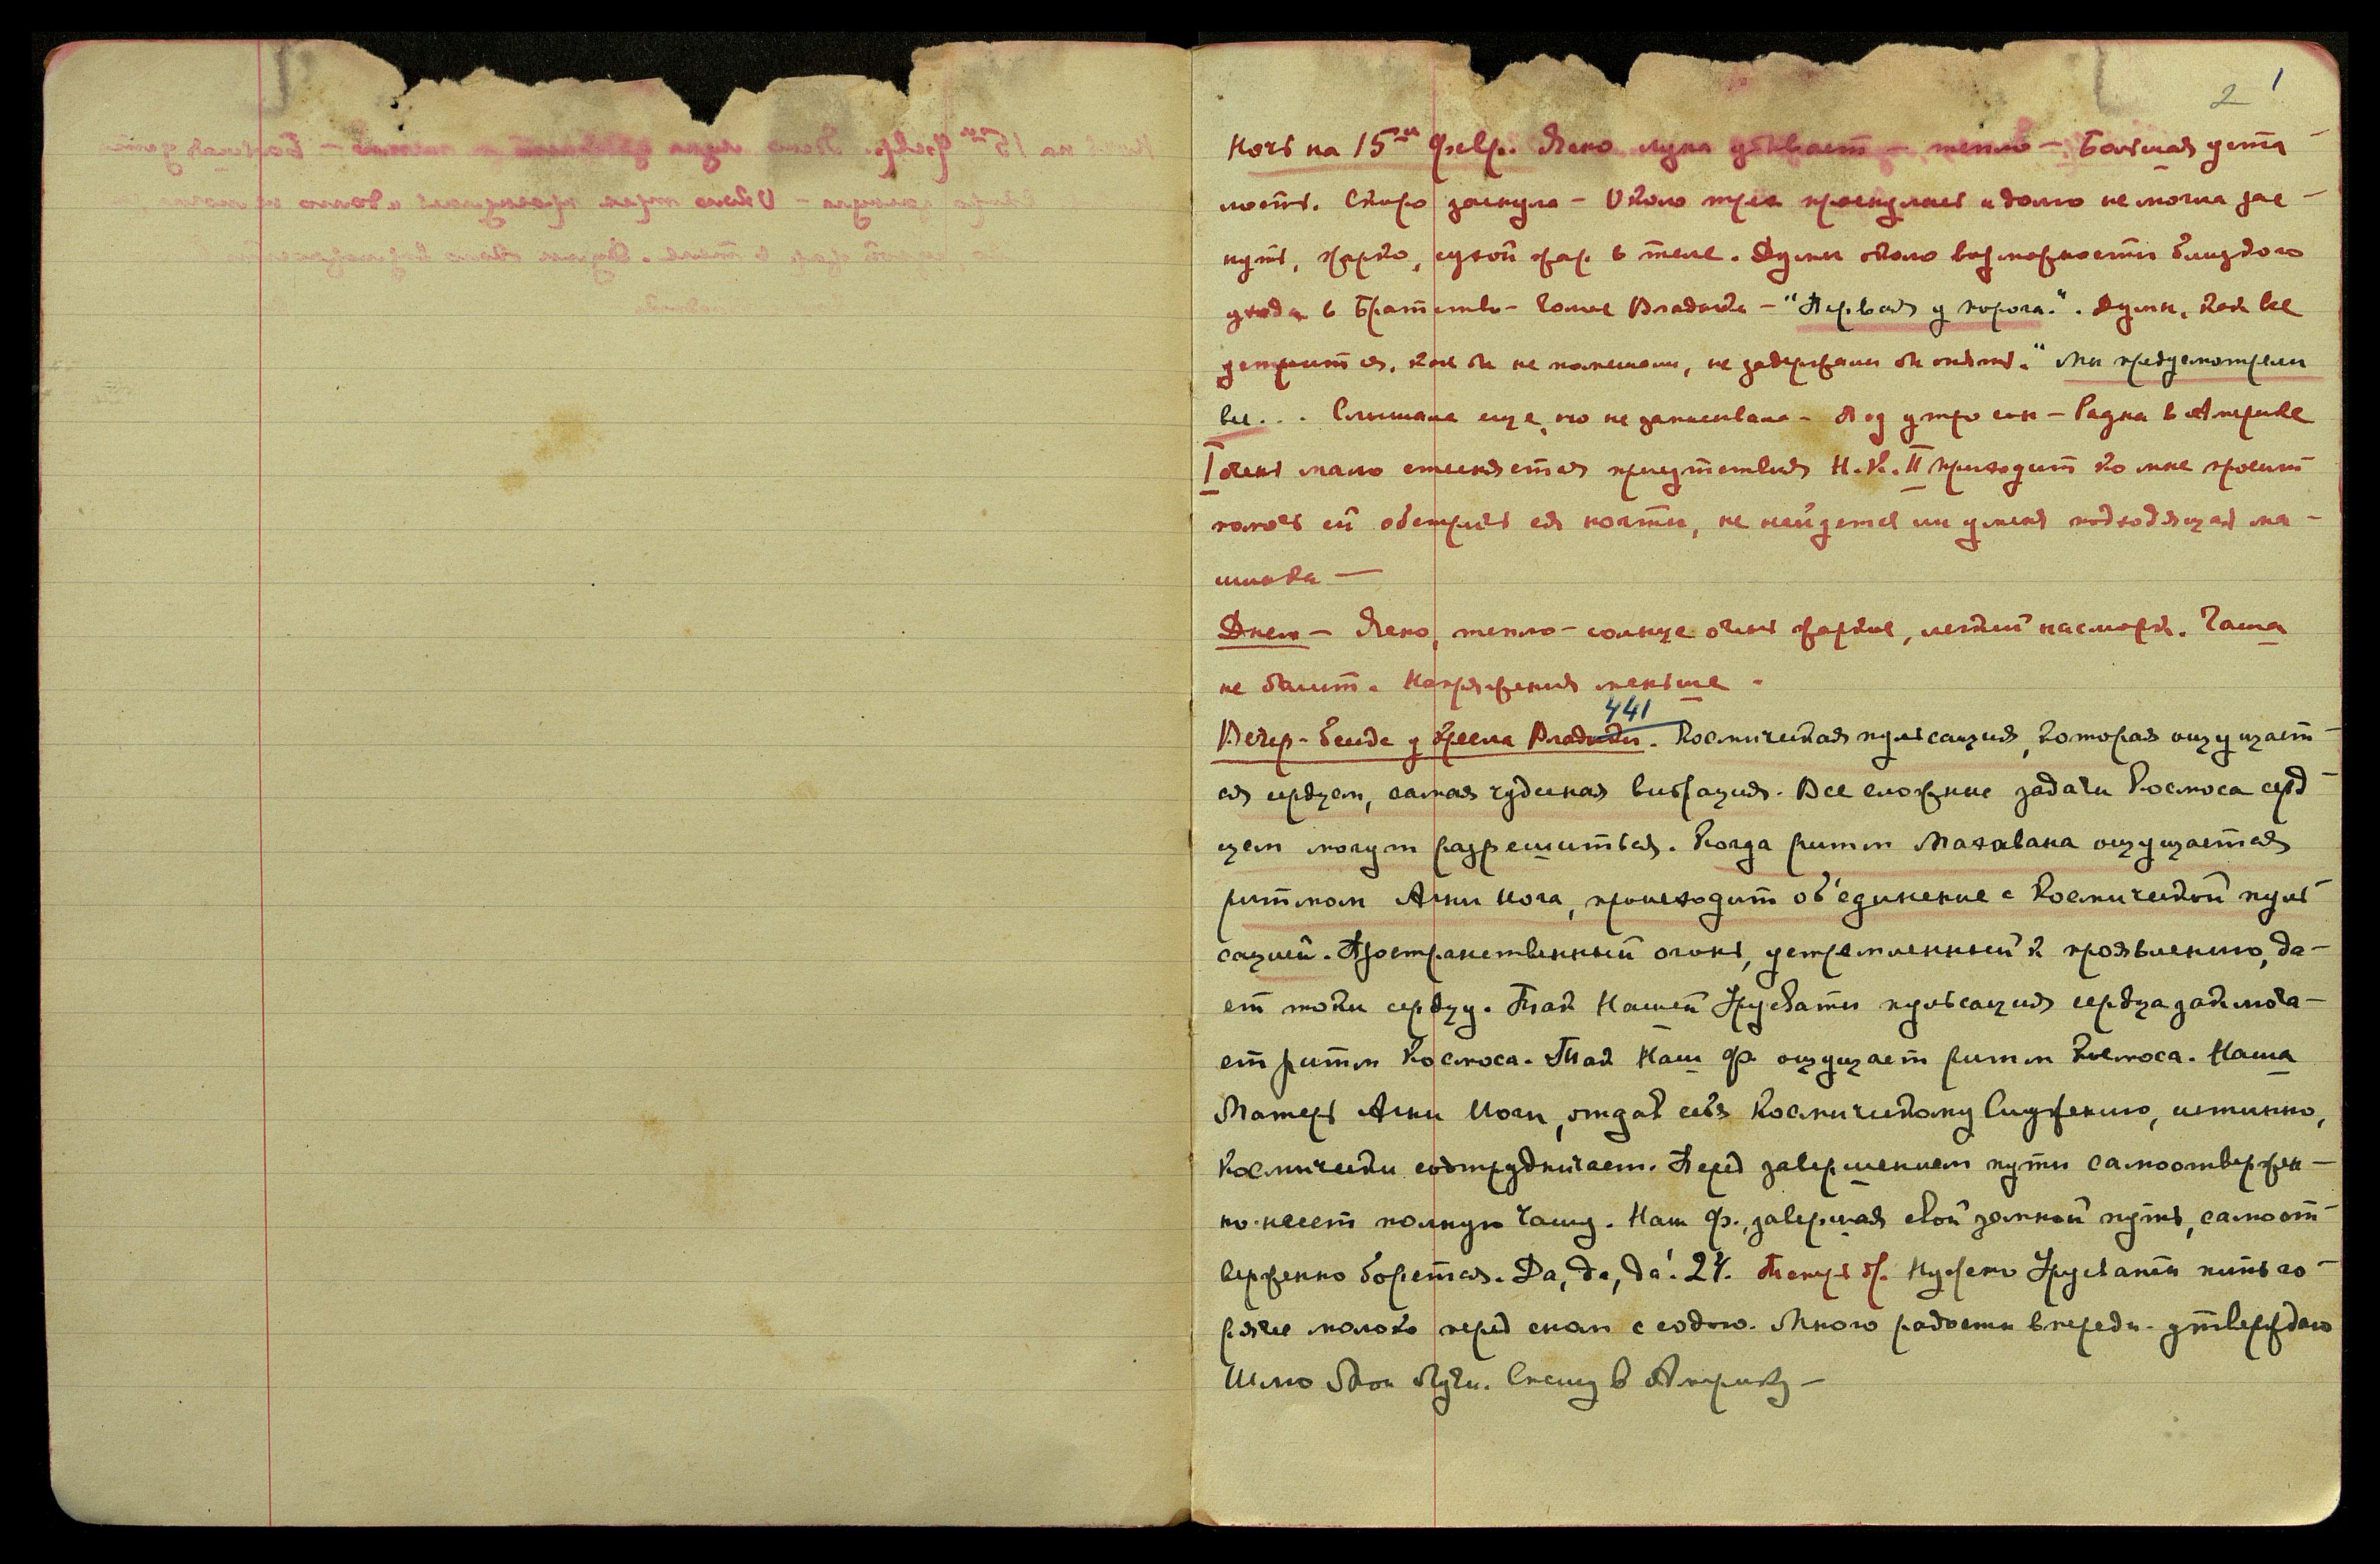 2 1
Ночь на 15ое февр. Ясно луна убывает – тепло – Большая уста-
лость. Скоро заснула – Около трех проснулась и долго не могла зас-
нуть, жарко, сухой жар в теле. Думы около возможности близкого
ухода в Братство – Голос Владыки – "Первая у порога.". Думы, как все
устроится, как бы не помешали, не задержали бы опять. "Мы предусмотрели
все... Слышала еще, но не записывала – Под утро сон – Радна в Америке
I очень мало стесняется присутствия Н.К. II приходит ко мне просит
помочь ей обстричь ея ногти, не найдется ли у меня подходящая ма-
шинка —
Днем – Ясно, тепло – солнце очень жаркое, легкий насморк. Чаша
не болит. Напряжения меньше.
441
Вечер – беседа у кресла Владыки. Космическая пульсация, которая ощущает-
ся сердцем, самая чудесная вибрация. Все сложные задачи Космоса серд-
цем могут разрешиться. Когда ритм Махавана ощущается
ритмом Агни Иога, происходит об'единение с Космической пуль-
сацией. Пространственный огонь, устремленный к проявлению, да-
ет токи сердцу. Так Нашей Урусвати пульсация сердца заключа-
ет ритм Космоса. Так Наш Ф. ощущает ритм Космоса. Наша
Матерь Агни Иоги, отдав себя Космическому Служению, истинно,
космически сотрудничает. Перед завершением пути самоотвержен-
но несет полную Чашу. Наш Ф., завершая свой земной путь, самоот-
верженно борется. Да, да, да! 24. Теперь др. Нужно Урусвати пить го-
рячее молоко перед сном с содою. Много радости впереди – утверждаю
Шлю Свои Лучи. Спешу в Америку –